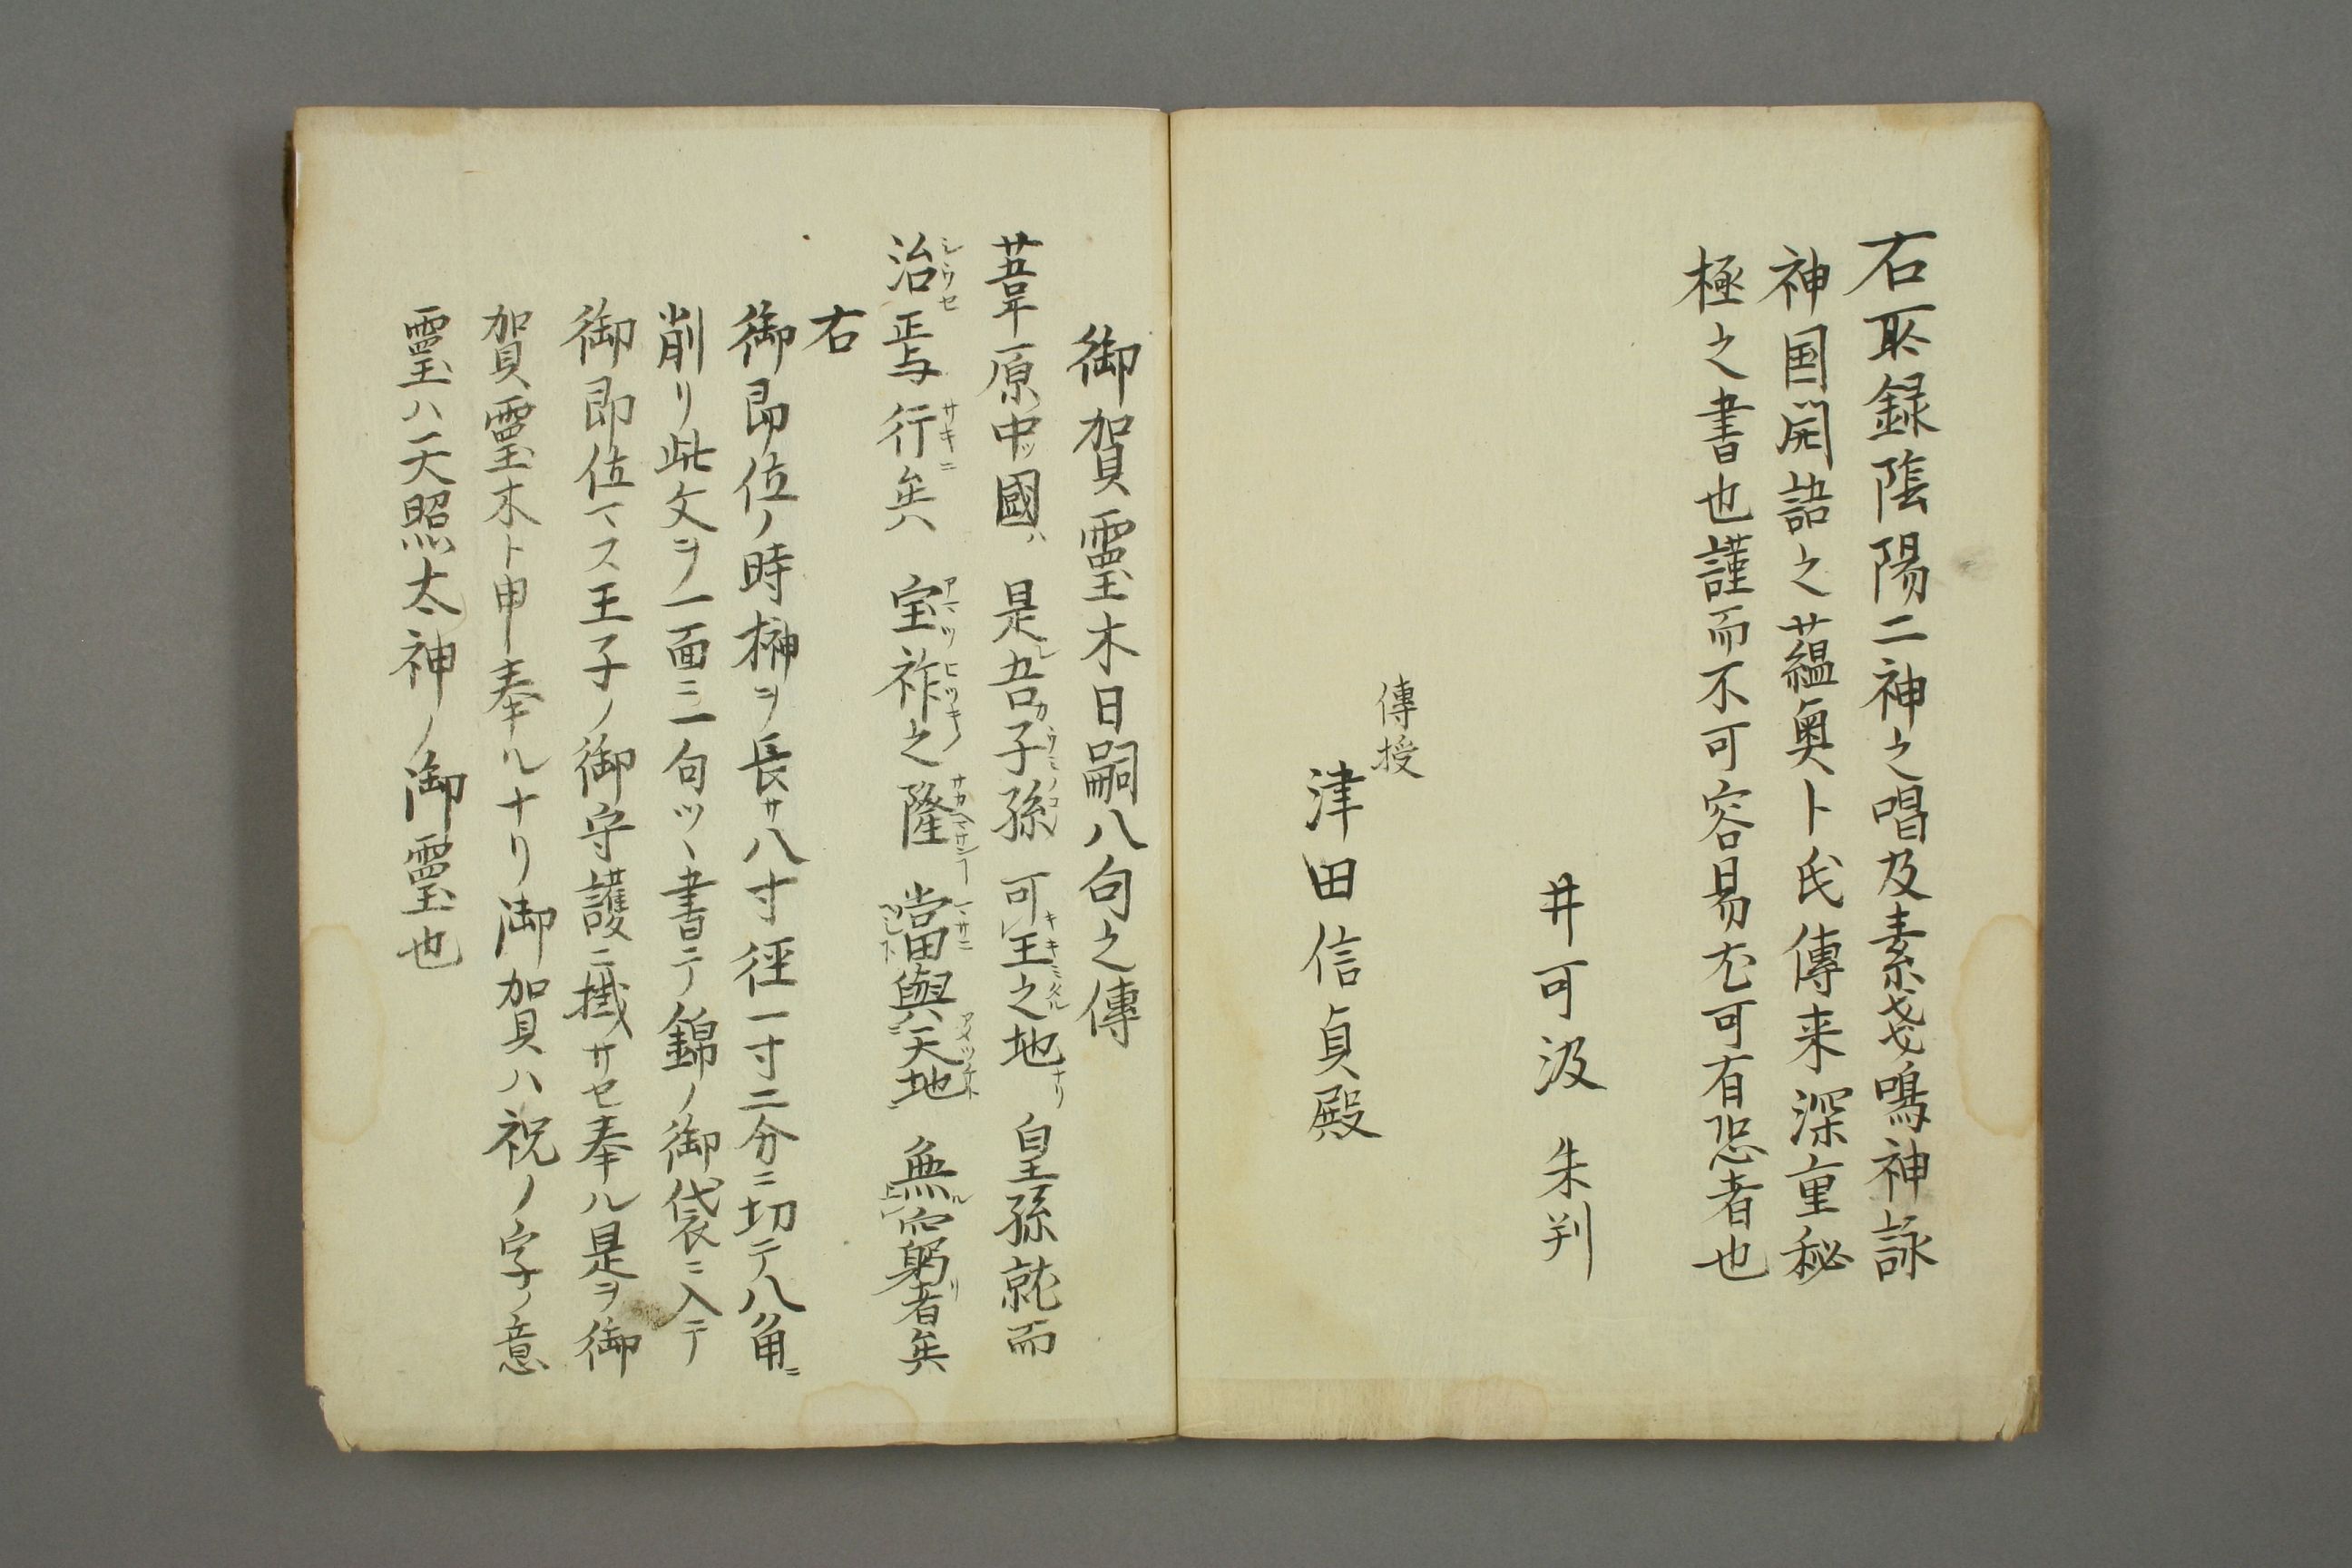 右所録陰陽二神之唱及素戔嗚神詠
神国開語之蘊奥卜氏傳来深重秘
極之書也謹而不可容易尤可有恐者也
井可汲 朱判
傳授
津田信貞殿
御賀霊木日嗣八句之傳
葦原中ッ國ハ 是レ吾カ子孫 可王之地ナリ 皇孫就而
治焉 行矣 宝祚之隆 當與天地 無窮者矣
右
御即位ノ時榊ヲ長サ八寸径一寸二分ニ切テ八角ニ
削リ此文ヲ一面ニ一句ツヽ書テ錦ノ御袋ニ入テ
御即位マス王子ノ御守護ニ掛サセ奉ル是ヲ御
賀霊木ト申奉ルナリ御賀ハ祝ノ字ノ意
霊ハ天照太神ノ御霊也